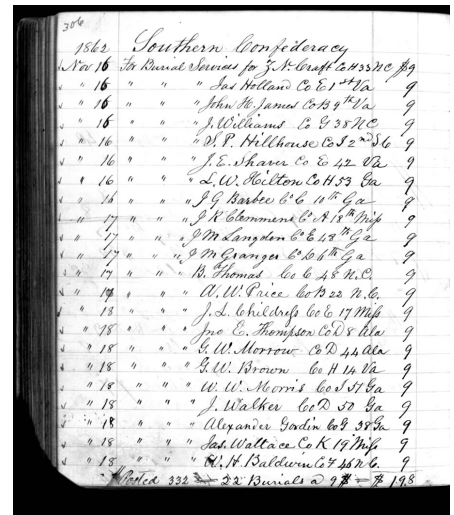 306
1862 Southern Confederacy
Nov 16 For Burial Services for Z. N. Craft Co H 33 NC $9
" 16 " " " Jas Holland Co E 1st Va 9
" 16 " " " John H. James Co B 9th Va 9
" 16 " " " J. Williams Co G 38 NC 9
" 16 " " " S. P. Hillhouse Co I 2nd S C 9
" 16 " " " J. E. Shaver Co E 42 Va 9
" 16 " " " L. W. Hilton Co H 53 Ga 9
" 16 " " " J G Barbee Co C 10th Ga 9
" 17 " " " J K Clemmens Co A 18th Miss 9
" 17 " " " J M Langdon Co E 48th Ga 9
" 17 " " " J M Granger Co 6th Ga 9
" 17 " " " B. Thomas Co C 48 N.C. 9
" 17 " " " A. W. Price Co B 22 N.C. 9
" 18 " " " J. L. Childress Co E 17 Miss 9
" 18 " " " Jno E. Thompson Co D 8 Ala 9
" 18 " " " G. W. Morrow Co D 44 Ala 9
" 18 " " " G. W. Brown Co H 14 Va 9
" 18 " " " W. W. Morris Co I 51 Ga 9
" 18 " " " J. Walker Co D 50 Ga 9
" 18 " " " Alexander Gordin Co G 38 Ga 9
" 18 " " " Jas. Wallace Co K 19 Miss 9
" 18 " " " W. H. Baldwin Co F 46 N.C. 9
Posted 332 22 Burials a 9 $ = $ 198